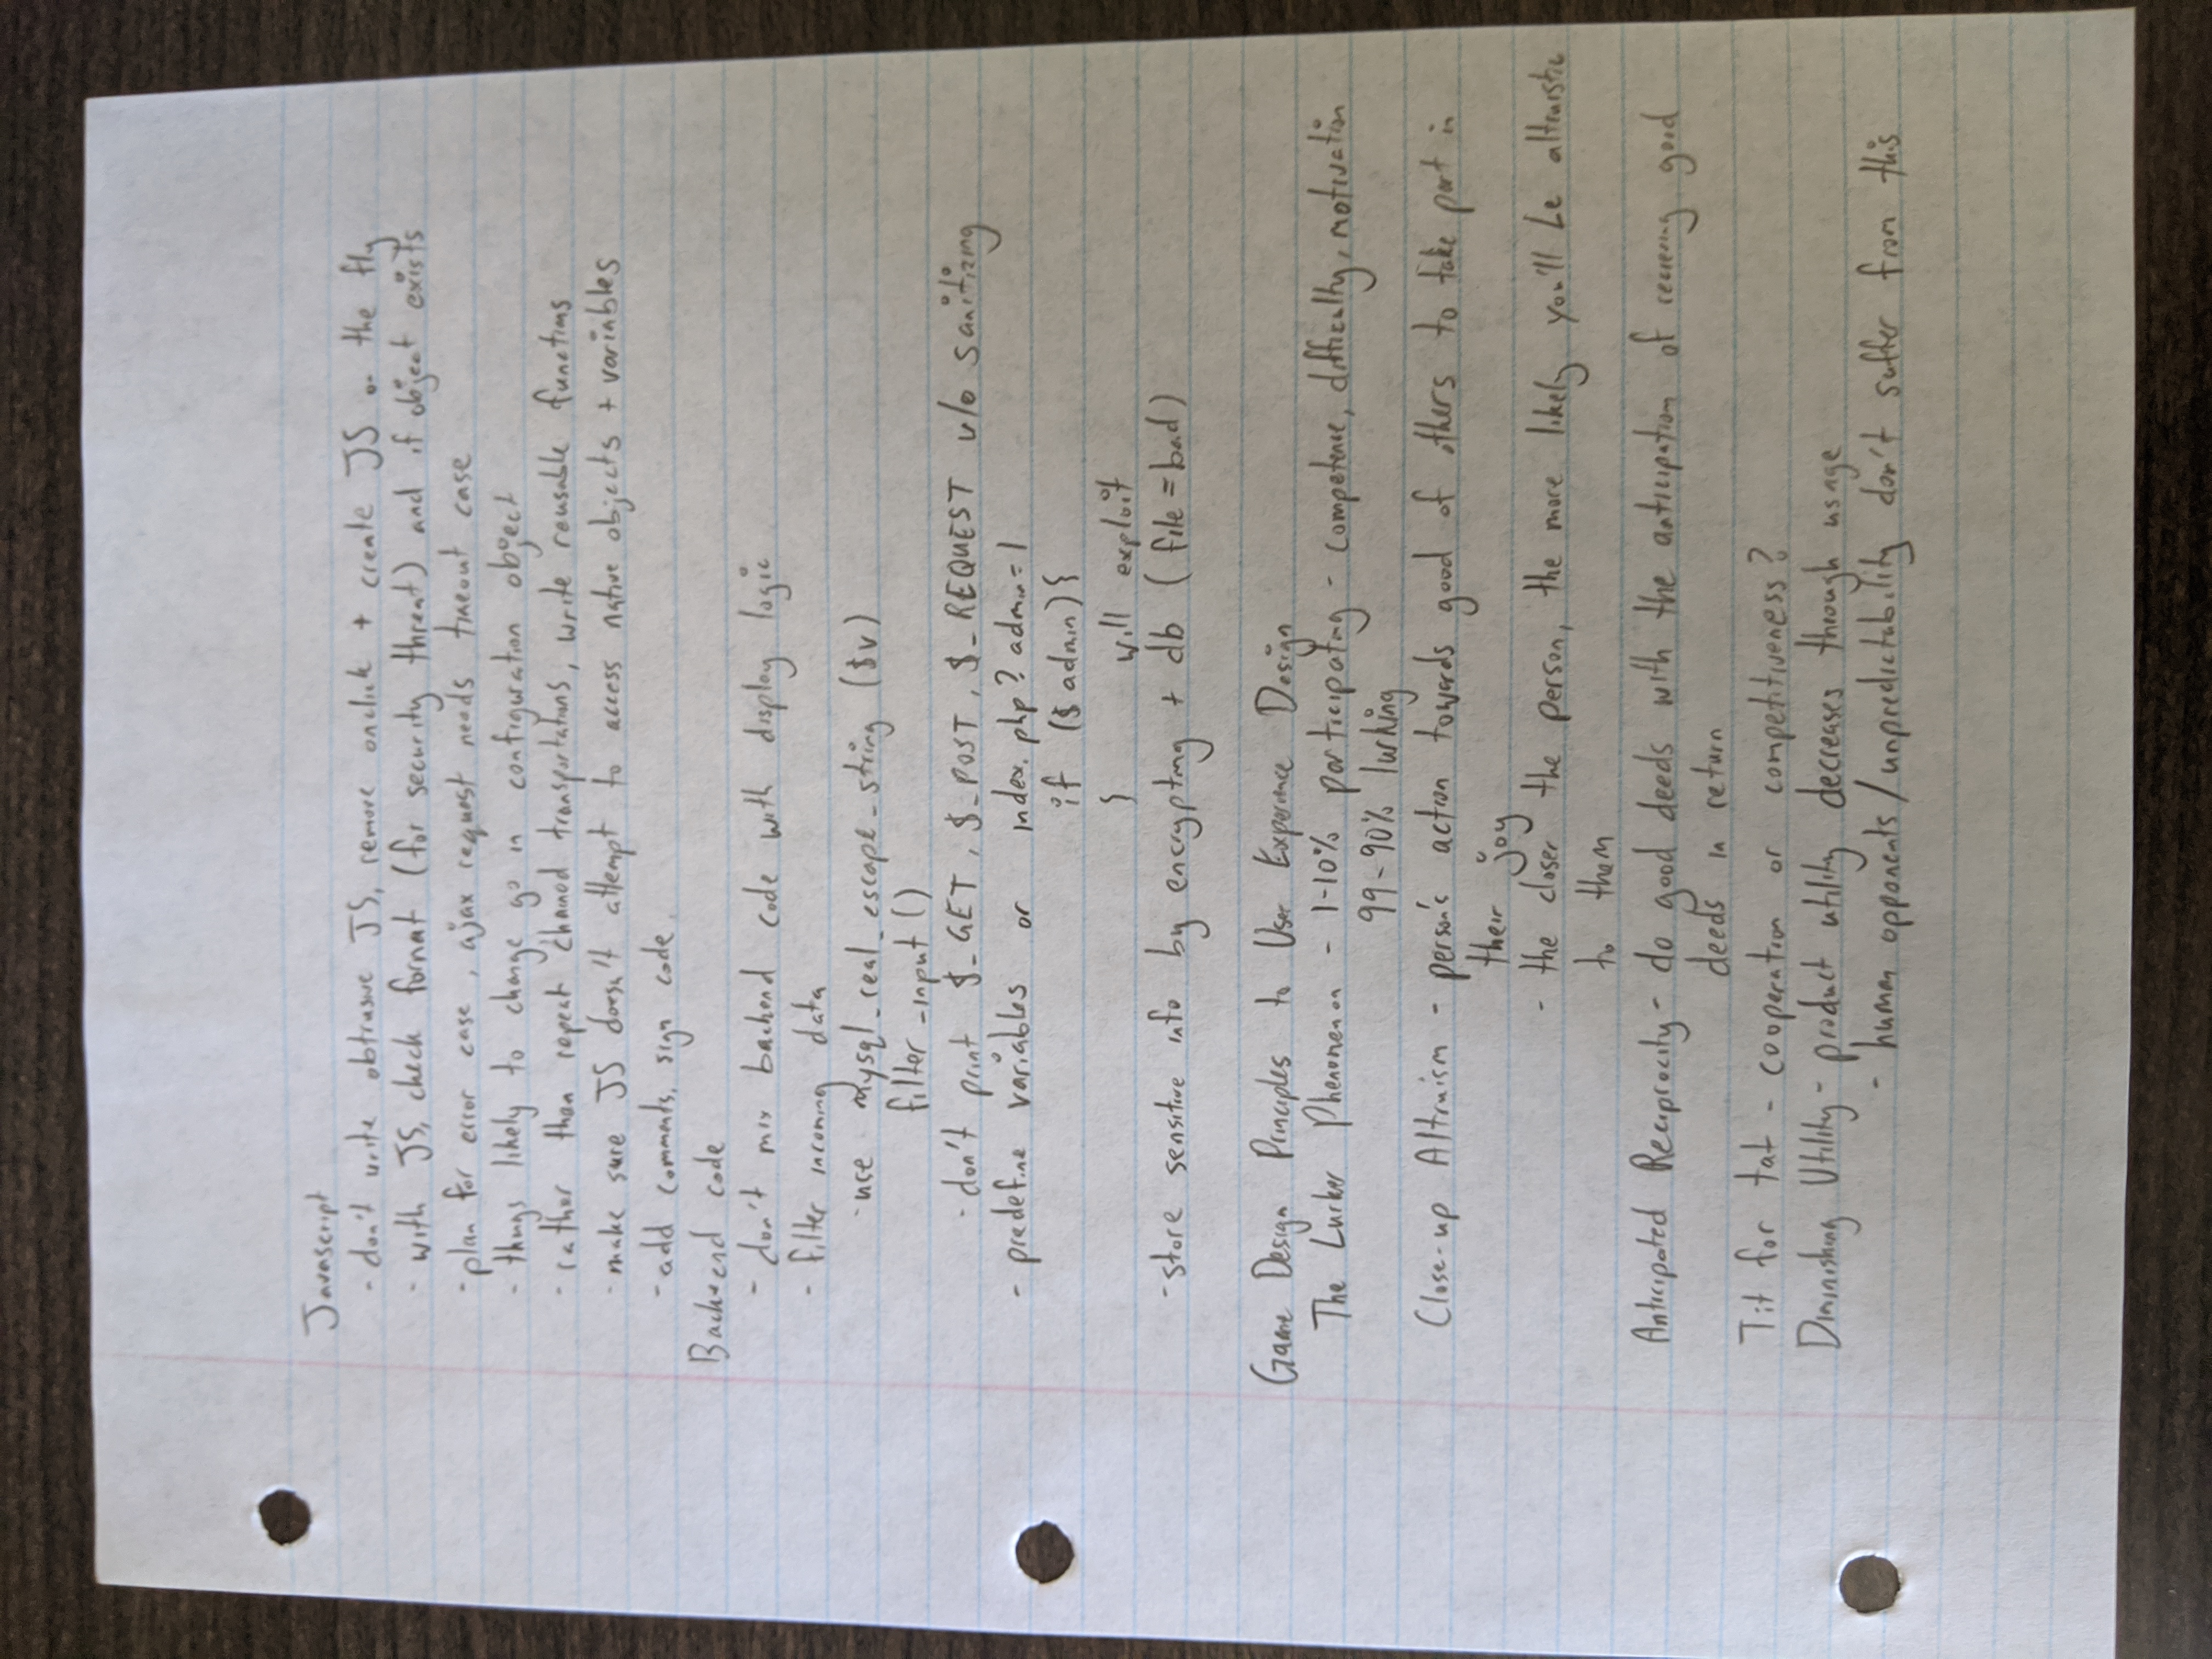 Javascript
- don't write obtrusive JS, remove onclick + create JS on the fly
- with JS, check format (for security threat) and if object exists
- plan for error case, ajax request needs timeout case
- things likely to change go in configuration object
- rather then repeat chained transportations, write reusable functions
- make sure JS doesn't attempt to access native objects + variables
- add comments, sign code
Backend code
- don't mix backend code with display logic
- filter incoming data
- use mysql_real_escape_string ($v)
filter_input ()
- don't print $_GET, $_POST, $_REQUEST w/o sanitizing
- predefine variables or index.php?admin=1
if ($admin){
} will exploit
- store sensitive info by encrypting + db (file = bad)
Game Design Principles to User Experience Design
The Lurker Phenomenon - 1-10% participating - competence, difficulty, motivation
99-90% lurking
Close-up Altruism - person's action towards good of others to take part in
their joy
- the closer the person, the more likely you'll be altruistic
to them
Anticipated Reciprocity - do good deeds with the anticipation of receiving good
deeds in return
Tit for tat - cooperation or competitiveness?
Diminishing Utility - product utility decreases through usage
- human opponents/unpredictability don't suffer from this